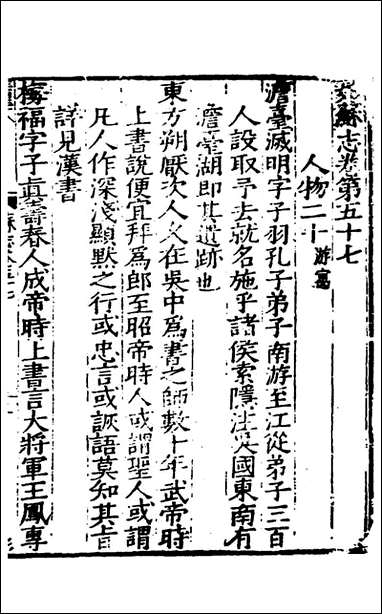 姑蘇志卷第五十七
人物二十 游寓
澹臺滅明字子羽孔子弟子南游至江從弟子三百
人設取予去就名施乎諸侯索隱注吳國東南有
澹臺湖即其遺跡也
東方朔厭次人久在吳中為書之師數十年武帝時
上書說便宜拜為郎至昭帝時人或謂聖人或謂
凡人作深淺顯默之行或忠言或詼語莫知其旨
詳見漢書
梅福字子真壽春人成帝時上書言大將軍王鳳專